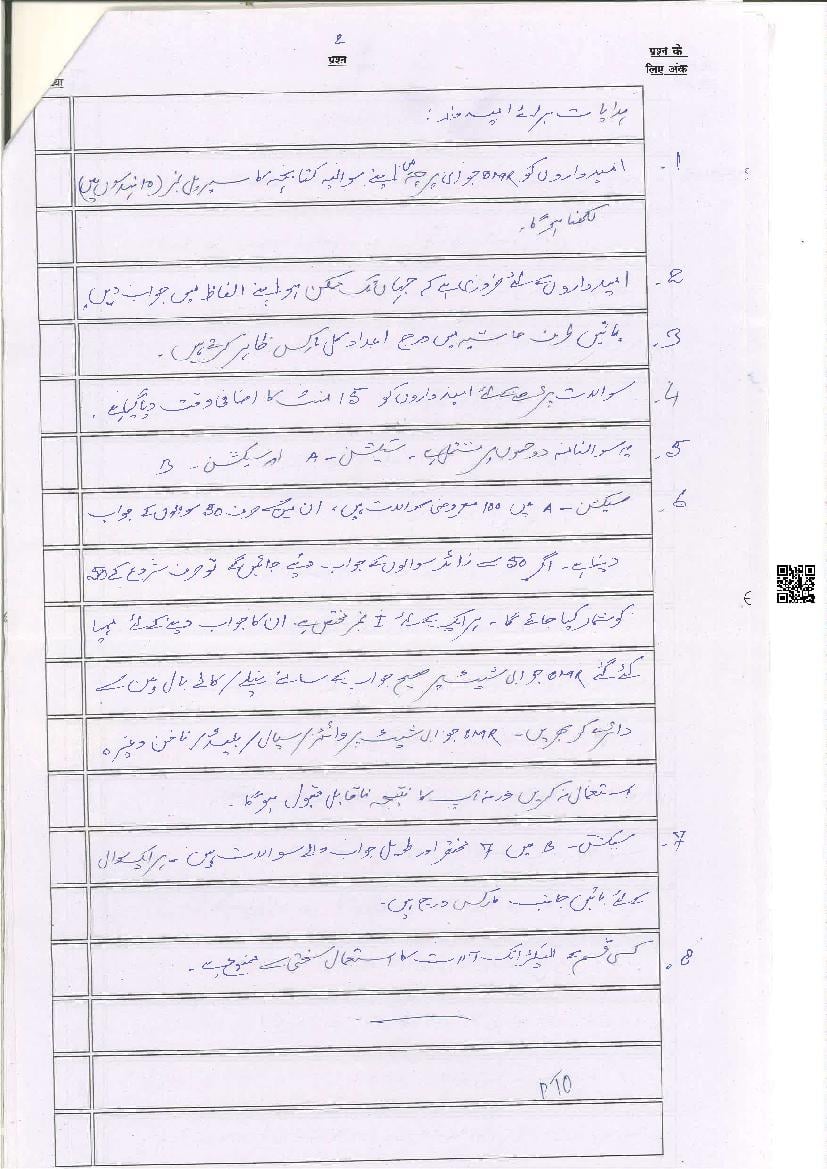 2
प्रश्न
प्रश्न के
लिए अंक
ہدایات برائے امیدوار :
1. امیدواروں کو OMR جوابی پرچہ میں اپنے سوالیہ کتابچہ کا سیریل نمبر (10 ہندسوں میں)
لکھنا ہوگا۔
2. امیدواروں کے لئے ضروری ہے کہ جہاں تک ممکن ہو اپنے الفاظ میں جواب دیں۔
3. بائیں طرف حاشیہ میں درج اعداد کل مارکس ظاہر کرتے ہیں۔
4. سوالات پڑھنے کے لئے امیدواروں کو 15 منٹ کا اضافی وقت دیا گیا ہے۔
5. یہ سوالنامہ دو حصوں پر مشتمل ہے۔ سیکشن - A اور سیکشن - B
6. سیکشن - A میں 100 معروضی سوالات ہیں، ان میں سے صرف 50 سوالوں کے جواب
دینا ہے۔ اگر 50 سے زائد سوالوں کے جواب دیئے جائیں گے تو صرف شروع کے 50
کو شمار کیا جائے گا۔ ہر ایک کے لئے 1 نمبر مختص ہے۔ ان کا جواب دینے کے لئے مہیا
کئے گئے OMR جوابی شیٹ پر صحیح جواب کے سامنے نیلے / کالے بال پین سے
دائرے کو بھریں۔ OMR جوابی شیٹ پر وائٹنر / سیال / بلیڈ / ناخن وغیرہ
استعمال نہ کریں ورنہ آپ کا نتیجہ ناقابل قبول ہوگا۔
7. سیکشن - B میں 7 مختصر اور طویل جواب والے سوالات ہیں۔ ہر ایک سوال
کے لئے بائیں جانب مارکس درج ہیں۔
8. کسی قسم کے الیکٹرانک آلات کا استعمال سختی سے ممنوع ہے۔
PTO